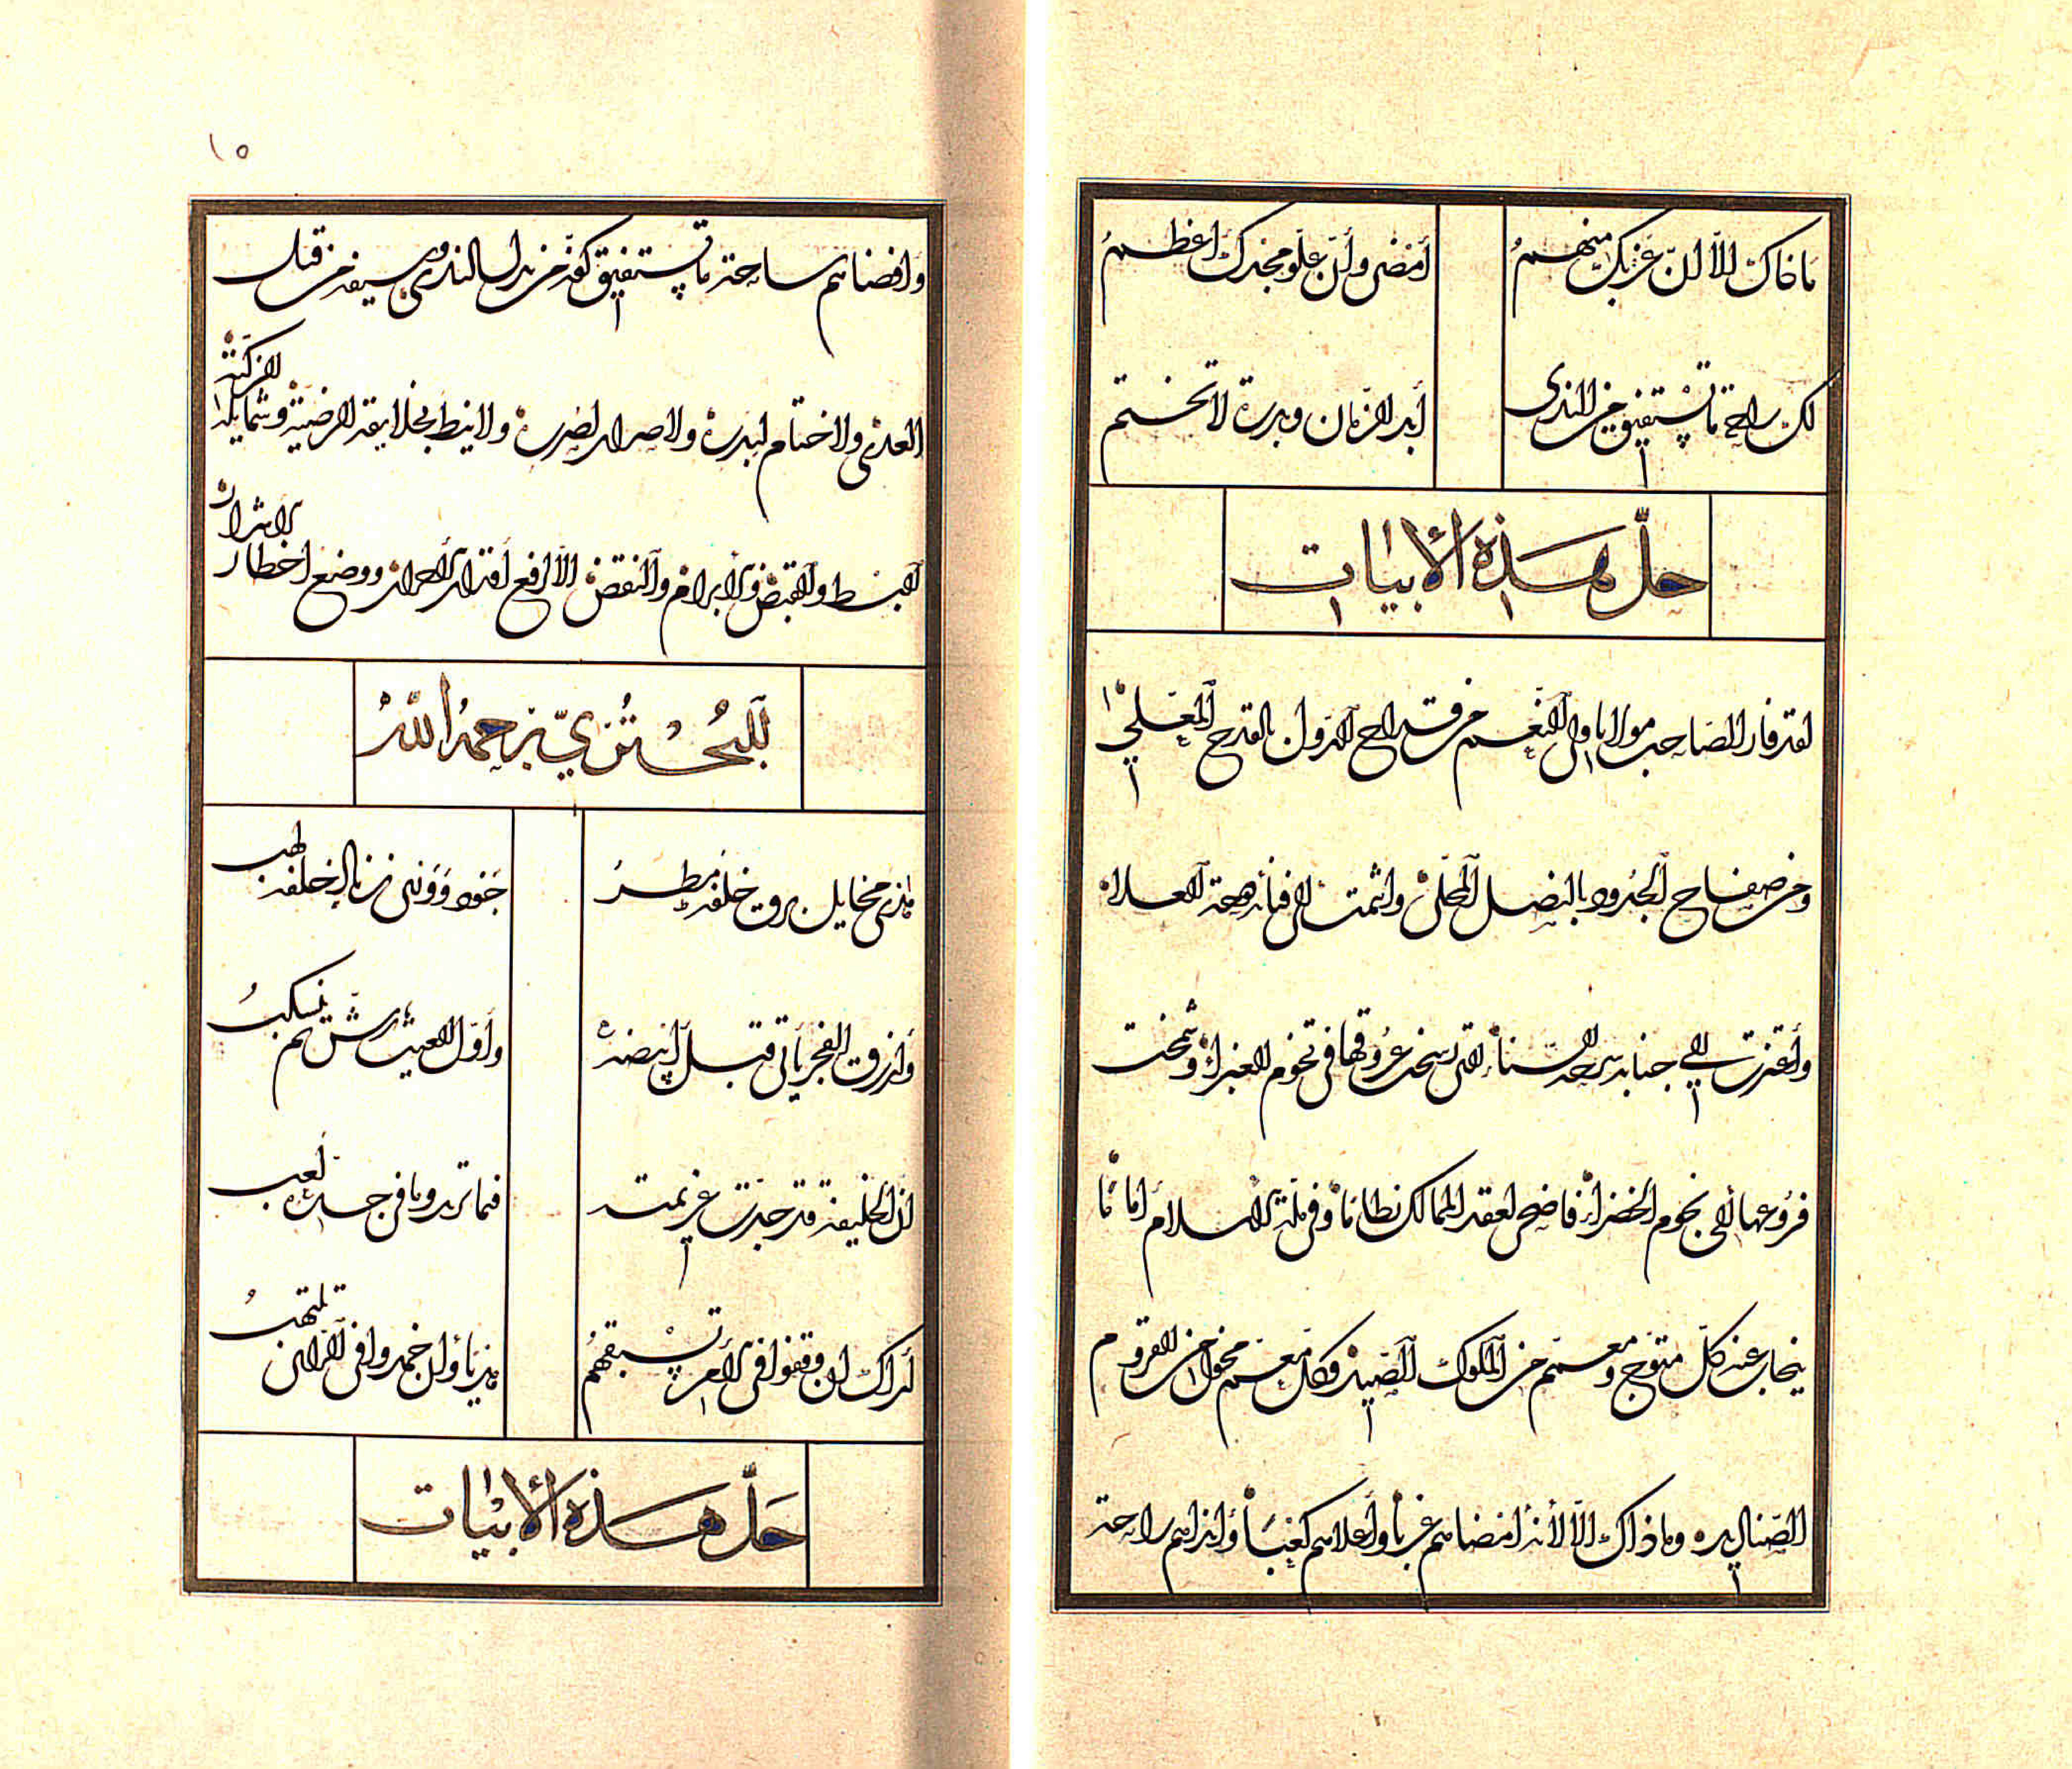 ما ذاك إلا أن عزبك منهم
أمضى وأن علو مجدك أعظم
لك راحة ما تستفيق من الندى
أبد الزمان وبدرة لا تختم
حل هذه الأبيات
لقد فاز الصاحب مولانا ولي النعم من قداح الدول بالقدح المعلى
ومن صفاح الجدود بالنصل المحلى وانتمت الى فنائه العلاء
وأعتزت إلى جنابه السناء التي رسخت عروقها في تخوم الغبراء وشمخت
فروعها الى نجوم الخضراء فاضحى لعقد الممالك نظاما وفي ملة الاسلام اماما
ينجاب عنه كل متوج ومعمم من الملوك الصيد وكل معم مخول من القروم
الصناديد وما ذاك الا لأنه امضاهم غربا وأعلاهم كعبا وأنداهم راحة
١٥
وافضاهم ساحة ما تستفيق كفه من بذل الندى وسيفه من قتل
العدى ولا ختام لبدره ولا صرار لصرره ولا نيط بخلايقه المرضية وشمايله الزكية
البسط والقبض والابرام والنقض الا لرفع أقدار الاحرار ووضع اخطار الاشرار
للبحتري رحمه الله
هذي مخايل برق خلفه مطر
جود ووري زناد خلفه لهب
وأزرق الفجر يأتي قبل أبيضه
وأول الغيث رش ثم ينسكب
ان الخليفة قد جدت عزيمته
فما تريد وما في جده لعب
أراك ان وقفوا في الأمر تسبقهم
هديا وان خمدوا في الرأي تلتهب
حل هذه الأبيات